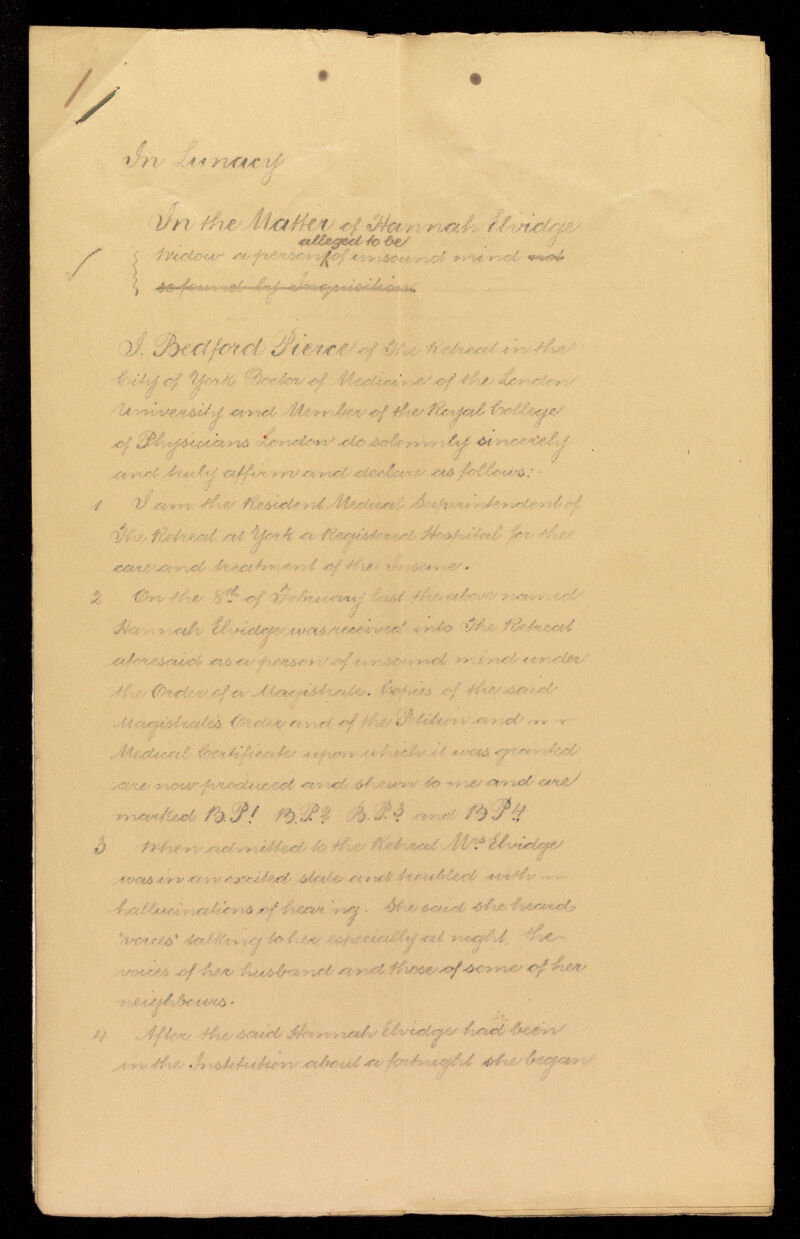 In Lunacy
In the Matter of Hannah Elvidge
alleged to be
Widow a person of unsound mind not
so found by Inquisition
I, Bedford Pierce of The Retreat in the
City of York Doctor of Medicine of the London
University and Member of the Royal College
of Physicians London do solemnly sincerely
and truly affirm and declare as follows:-
1 I am the Resident Medical Superintendent of
The Retreat at York a Registered Hospital for the
care and treatment of the Insane.
2 On the 8th of February last the above named
Hannah Elvidge was received into The Retreat
aforesaid as a person of unsound mind under
the Order of a Magistrate. Copies of the said
Magistrates Order and of the Petition and
Medical Certificate upon which it was granted
are now produced and shewn to me and are
marked B.P.1 B.P.2 B.P.3 and B P 4
3 When admitted to the Retreat Mrs Elvidge
was in an excited state and troubled with
hallucinations of hearing. She said she heard
"voices" talking to her especially at night, the
voices of her husband and those of some of her
neighbours.
4 After the said Hannah Elvidge had been
in the Institution about a fortnight she began